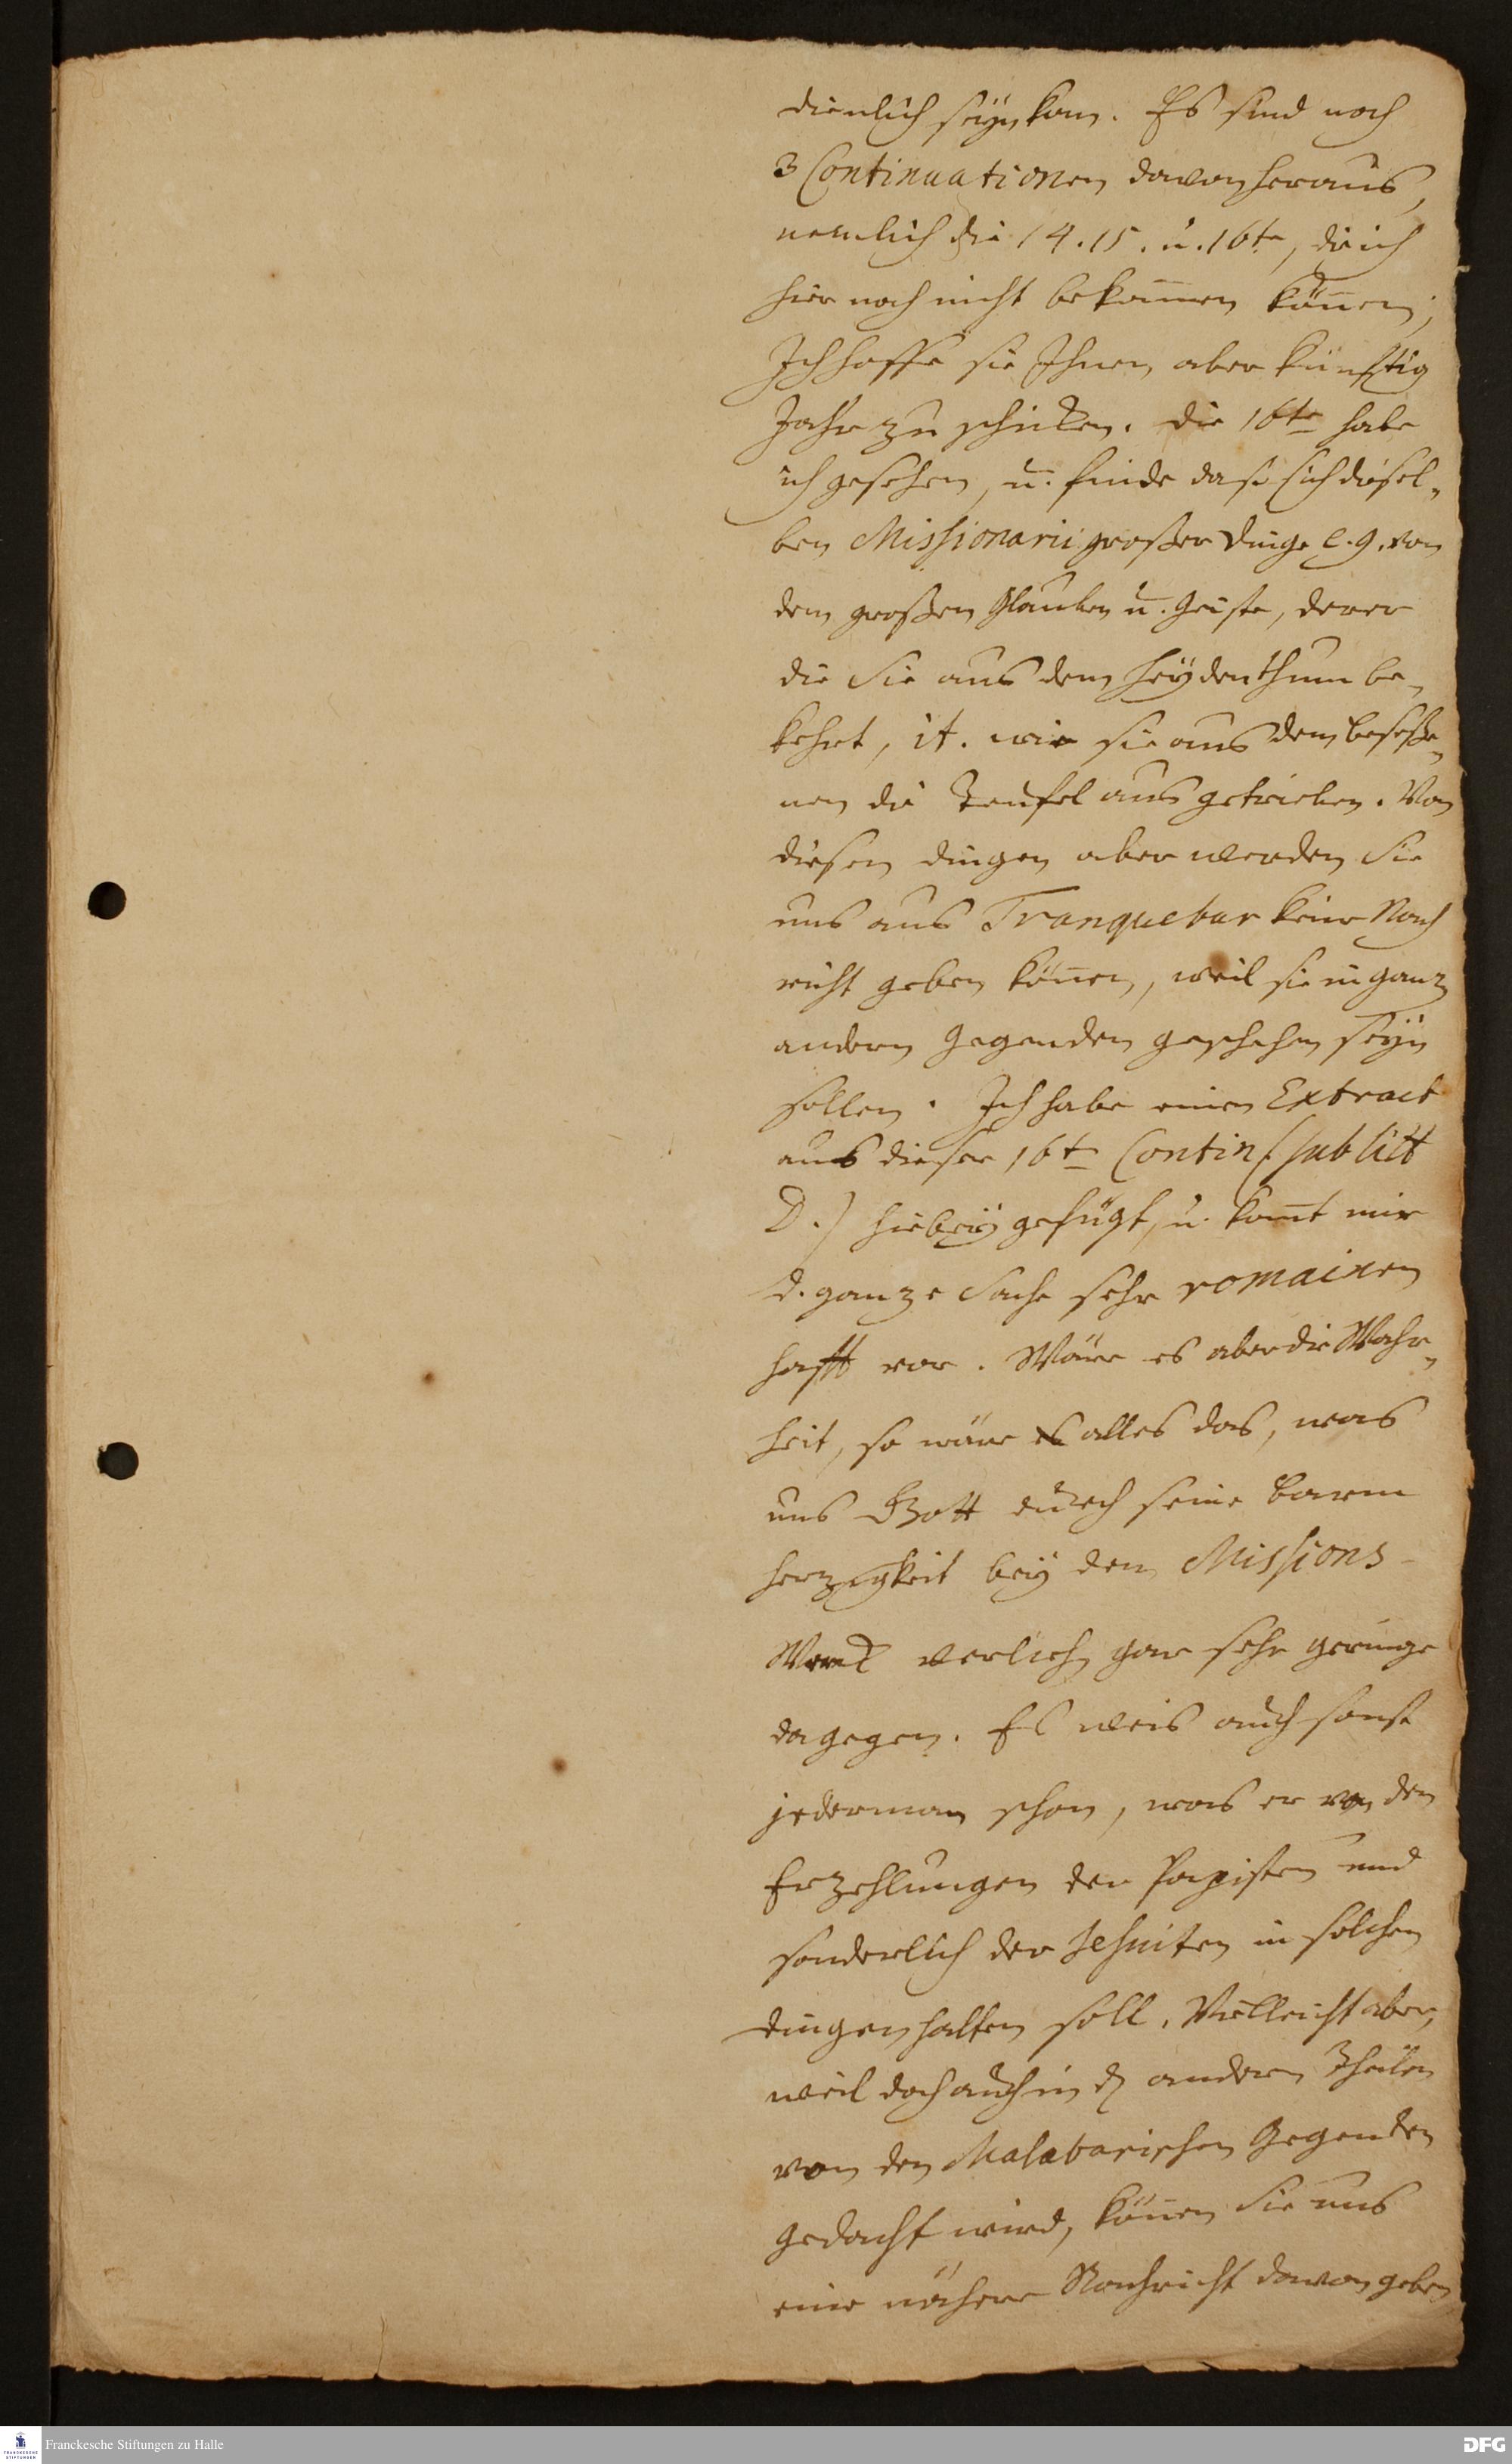 dienlich seÿn kan. Es sind noch
3 Continuationen davon heraus,
nemlich die 14. 15. u. 16te, die ich
hier noch nicht bekom̅en kön̅en;
Ich hoffe sie Ihnen aber künfftig
Jahr zu schicken. Die 16te habe
ich gesehen, u. finde daß sich diesel-
ben Missionarii großer Dinge e. g. von
dem großen Glauben u. Geiste, derer
die Sie aus dem Heÿdenthum be-
kehrt, it. wie sie aus dem beseße-
nen die Teufel aus getrieben. Von
diesen dingen aber werden Sie
uns aus Tranquebar keine Nach
richt geben kön̅en, weil sie in ganz
andern Gegenden geschehen seÿn
sollen. Ich habe einen Extract
aus dieser 16te Contin (sub litt
D.) hiebeÿ gefügt, u. kom̅t mir
d. ganze Sache sehr romainen
hafft vor. Wäre es aber die Wahr-
heit, so wäre es alles das, was
uns Gott durch seine Barm
herzigkeit beÿ dem Missions-
Werck verlieh gar sehr geringe
dagegen. Es weis auch sonst
jederman schon, was er von den
Erzehlungen der Papisten und
sonderlich der Jesuiten in solchen
dingen halten soll. Vielleicht aber,
weil doch auch in d andern Theilen
von den Malabarischen Gegenden
gedacht wird, kön̅en Sie uns
eine nähere Nachricht davon geben
Franckesche Stiftungen zu Halle
FRANCKESCHE STIFTUNGEN
DFG